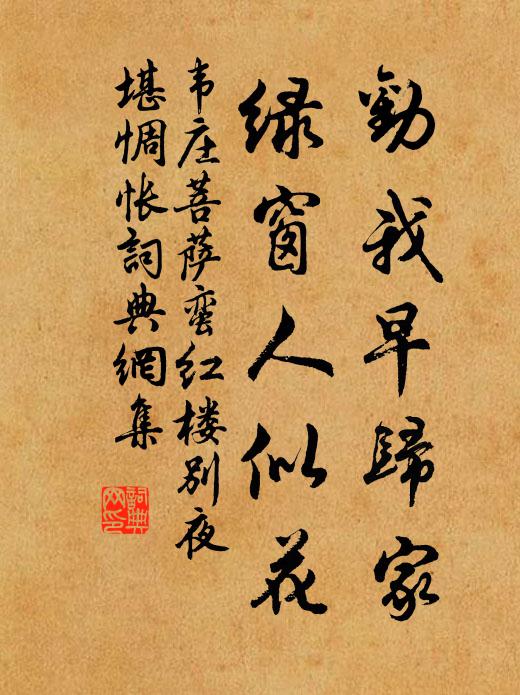 勸我早歸家
绿窗人似花
韦庄菩萨蛮红楼别夜
堪惆怅詞典網集
詞典
网印